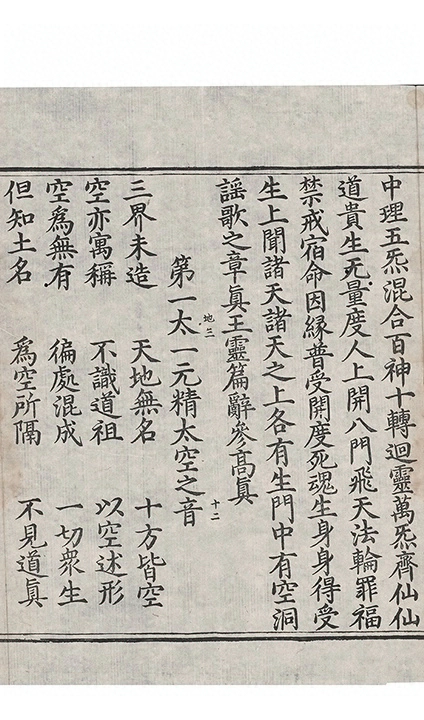 中理五炁混合百神十轉迴靈萬炁齊仙仙
道貴生无量度人上開八門飛天法輪罪福
禁戒宿命因緣普受開度死魂生身身得受
生上聞諸天諸天之上各有生門中有空洞
謡歌之章真王靈篇辭參高真
地三
十二
第一太一元精太空之音
三界未造 天地無名 十方皆空
空亦寓稱 不識道祖 以空述形
空為無有 徧處混成 一切衆生
但知土名 為空所隔 不見道真